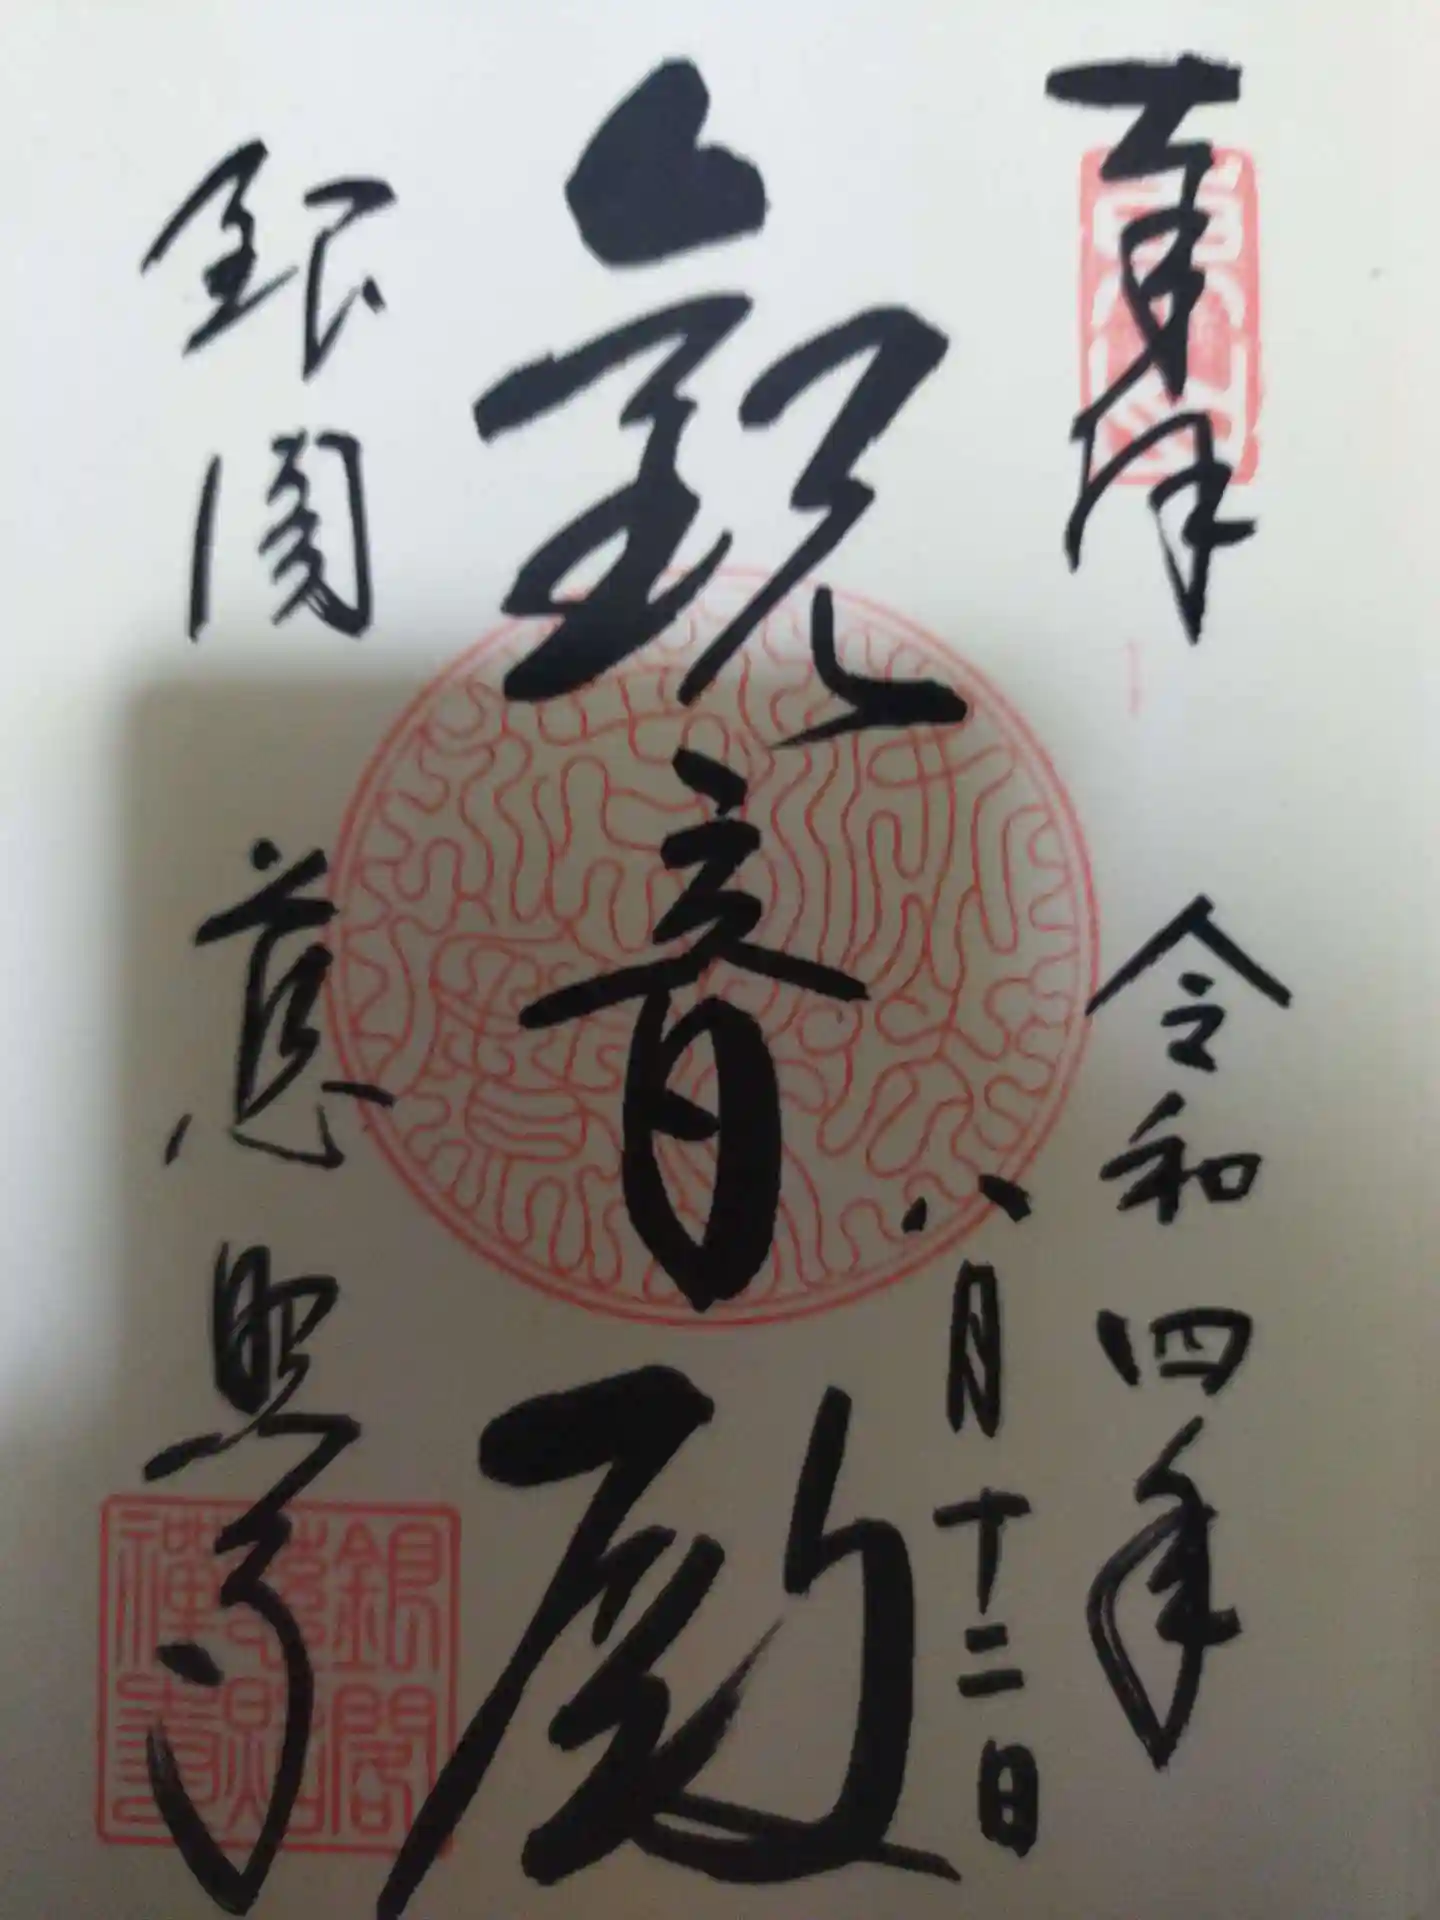 奉拝
令和四年
八月十二日
観音殿
銀閣 慈照寺
銀閣
慈照
禅寺